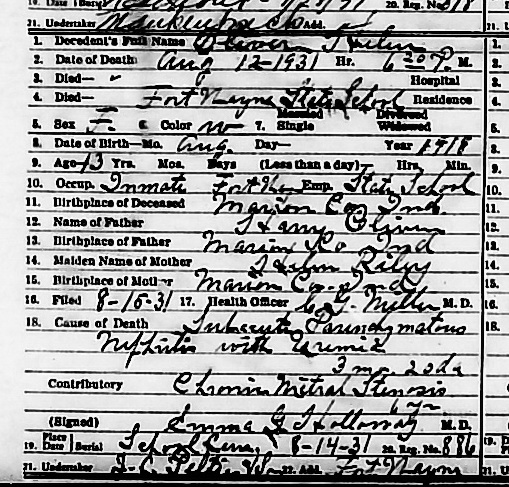 19. Date Burial 20. Reg. No. 818
21. Undertaker Add.
1. Decedent's Full Name Oliver, Helen
2. Date of Death Aug 12-1931 Hr. 6 30 P. M.
3. Died— " Hospital
4. Died— Fort Wayne State School Residence
5. Sex F. 6. Color W 7. Married Single Divorced Widowed
8. Date of Birth—Mo. Aug. Day— Year 1918
9. Age 13 Yrs. Mos. Days (Less than a day) Hrs. Min.
10. Occup. Inmate Fort Wayne Emp. State School
11. Birthplace of Deceased Marion Co, Ind.
12. Name of Father Harry Oliver
13. Birthplace of Father Marion Co Ind
14. Maiden Name of Mother Helen Riley
15. Birthplace of Mother Marion Co Ind
16. Filed 8-15-31 17. Health Officer Miller M. D.
18. Cause of Death Subacute Parenchymatous
Nephritis with Uremia
3 mo. 20 da
Contributory Chronic Mitral Stenosis
6 yr
(Signed) Emma G Holloway M. D.
19. Place Date Burial School Cem. 8-14-31 20. Reg. No. 886
21. Undertaker J. C. Peltier & Son 22. Add. Fort Wayne